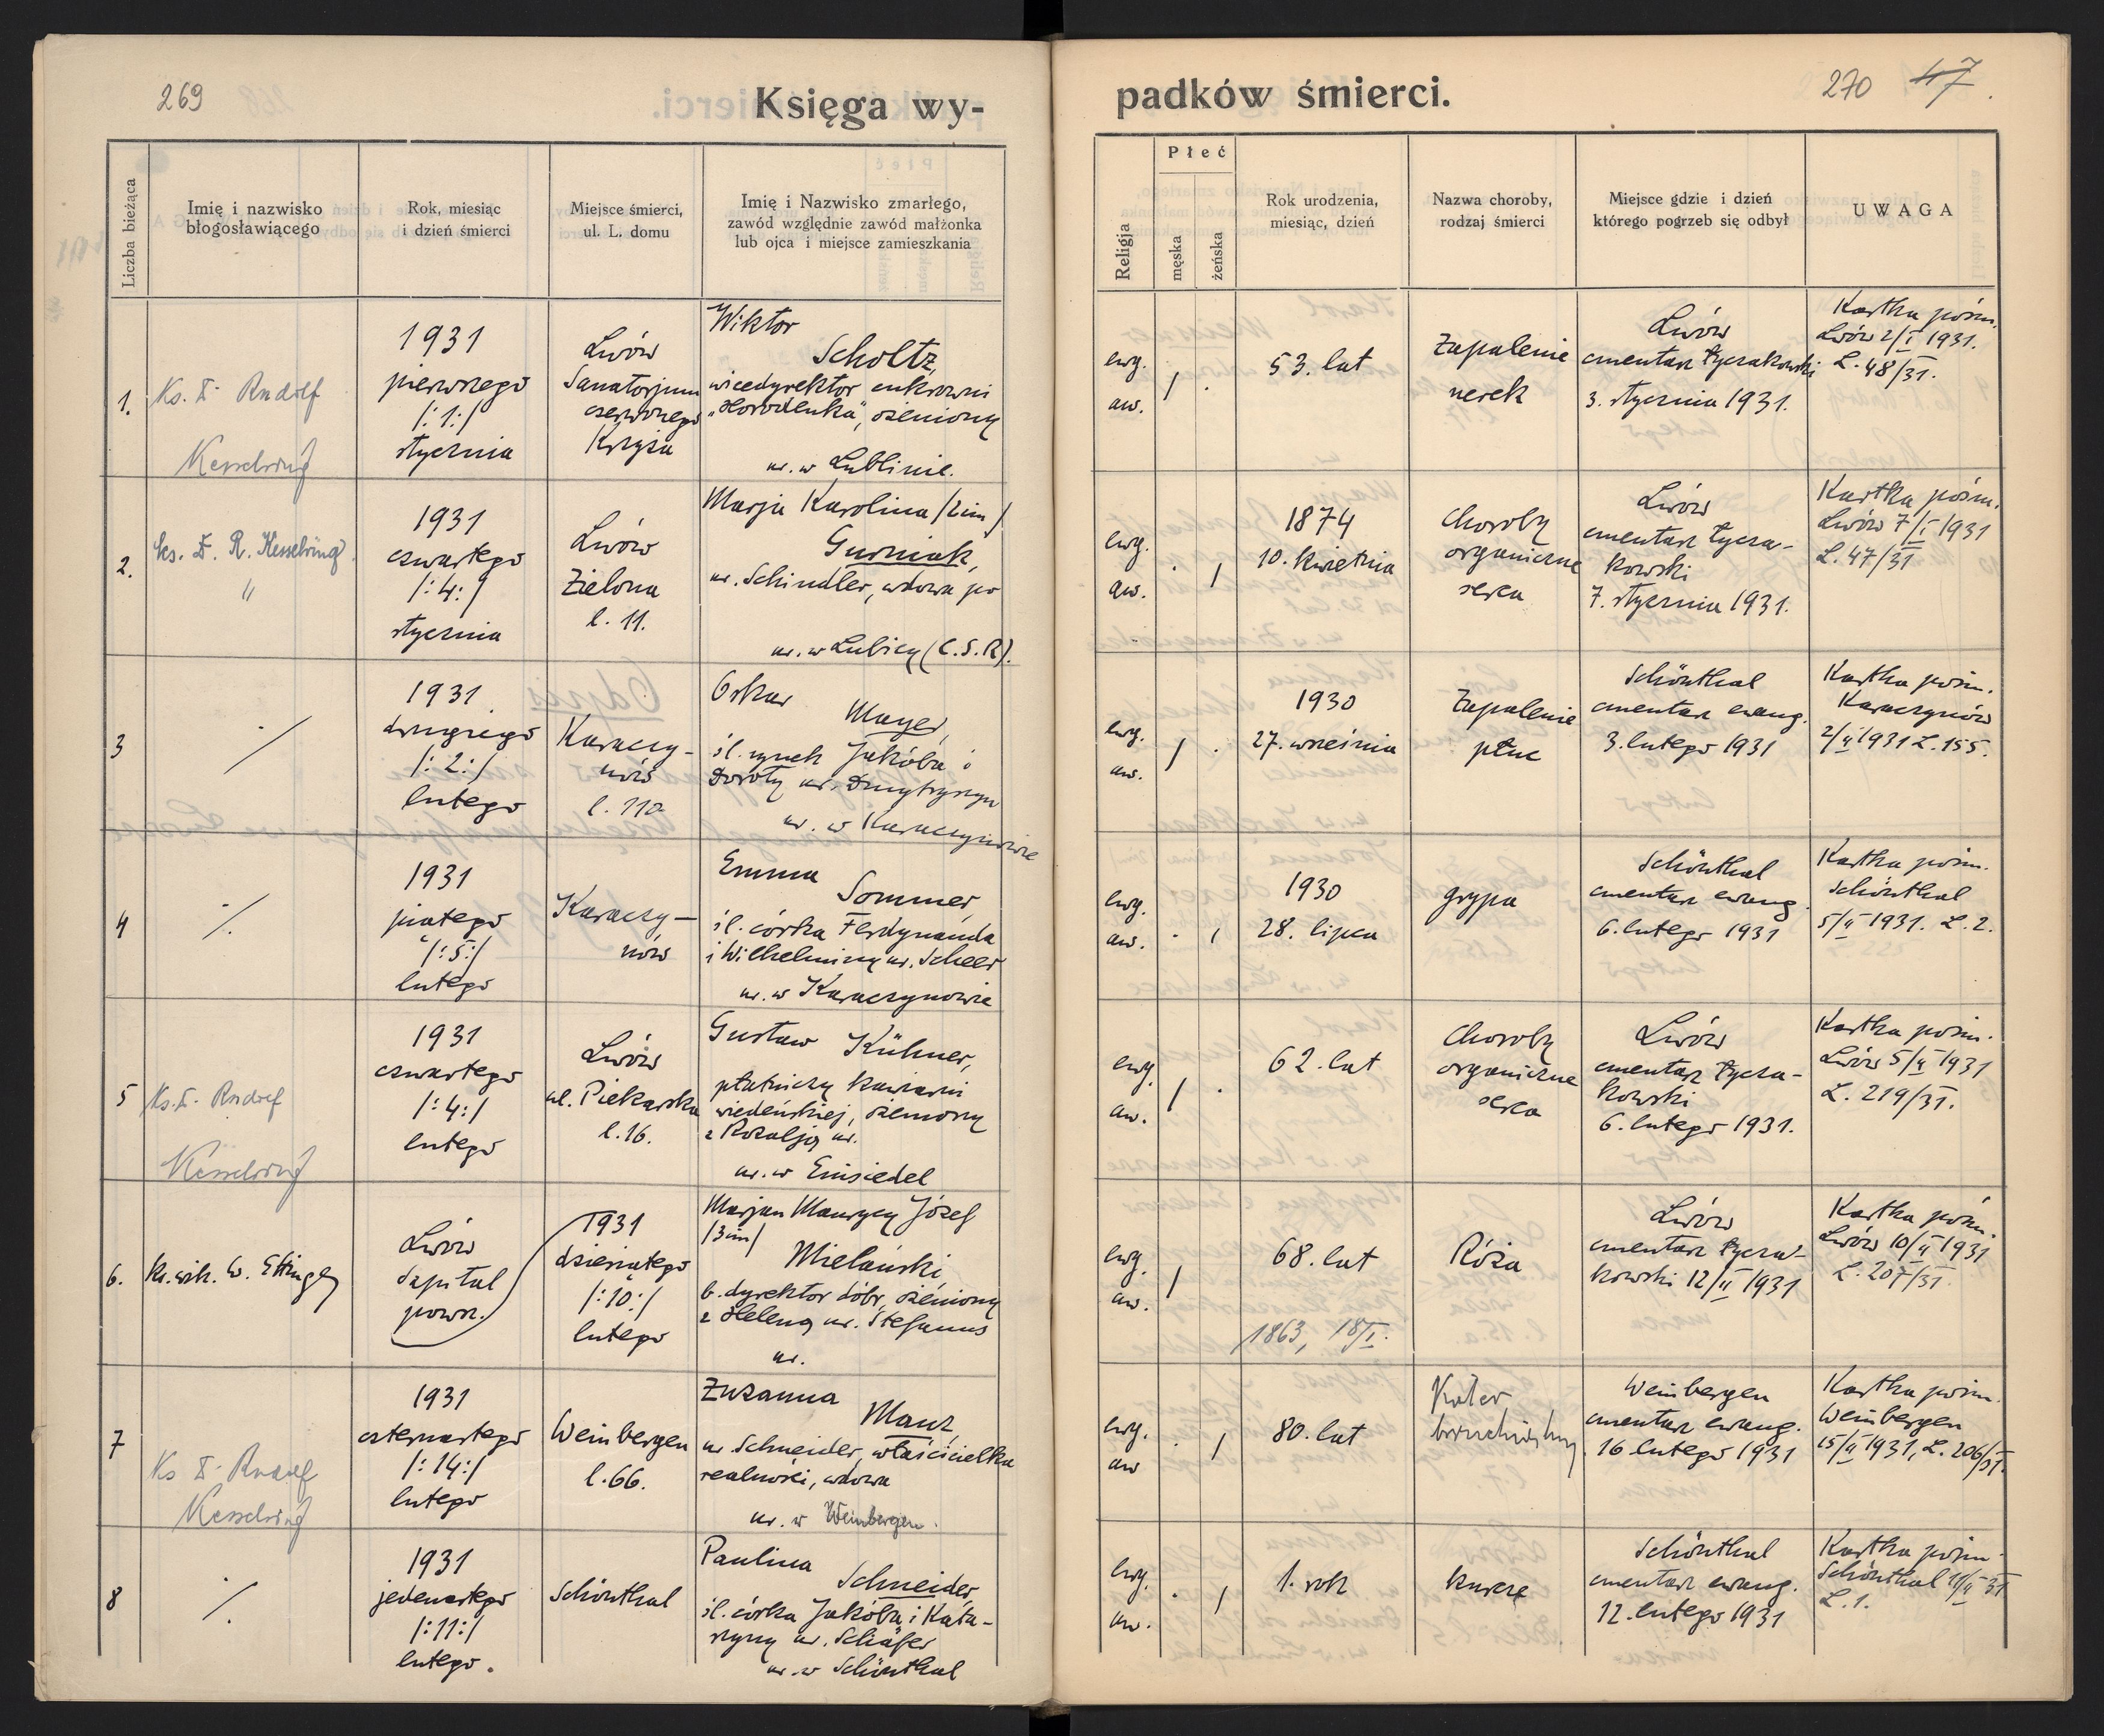 269
Księga wy-
padków śmierci.
270 47
Liczba bieżąca
Imię i nazwisko
błogosławiącego
Rok, miesiąc
i dzień śmierci
Miejsce śmierci,
ul. L. domu
Imię i Nazwisko zmarłego,
zawód względnie zawód małżonka
lub ojca i miejsce zamieszkania
Religja
Płeć
męska
żeńska
Rok urodzenia,
miesiąc, dzień
Nazwa choroby,
rodzaj śmierci
Miejsce gdzie i dzień
którego pogrzeb się odbył
UWAGA
1.
Ks. D. Rudolf
Kesselring
1931
pierwszego
/:1:/
stycznia
Lwów
Sanatorjum
czerwonego
Krzyża
Wiktor
Scholtz,
wicedyrektor cukrowni
„Horodenka", ożeniony
ur. w Lublinie.
ewg.
aw.
/ .
53. lat
Zapalenie
nerek
Lwów
cmentarz Łyczakowski
3. stycznia 1931.
Kartka pośm.
Lwów 2/I 1931.
L. 48/31.
2.
ks. D. R. Kesselring.
"
1931
czwartego
/:4:/
stycznia
Lwów
Zielona
l. 11.
Marja Karolina /2im/
Gurniak,
ur. Schindler, wdowa po
ur. w Lubicy (C.S.R).
ewg.
aw.
. /
1874
10. kwietnia
choroby
organiczne
serca
Lwów
cmentarz Łycza-
kowski
7. stycznia 1931.
Kartka pośm.
Lwów 7/I 1931
L. 47/31
3
./.
1931
drugiego
/:2:/
lutego
Karaczy-
nów
l. 110
Oskar
Mayer,
śl. synek Jakóba i
Doroty ur. Dmytryszyn
ur. w Karaczynowie
ewg.
aw.
/ .
1930
27. września
Zapalenie
płuc
Schönthal
cmentarz ewang.
3. lutego 1931
Kartka pośm.
Karaczynów
2/II 1931 L. 155.
4
./.
1931
piątego
/:5:/
lutego
Karaczy-
nów
Emma
Sommer,
śl. córka Ferdynanda
i Wilhelminy ur. Scheer
ur. w Karaczynowie
ewg.
aw.
. /
1930
28. lipca
grypa
Schönthal
cmentarz ewang.
6. lutego 1931
Kartka pośm.
Schönthal
5/II 1931. L. 2.
5
Ks. D. Rudolf
Kesselring
1931
czwartego
/:4:/
lutego
Lwów
ul. Piekarska
l. 16.
Gustaw Kühner,
płatniczy kawiarni
wiedeńskiej, ożeniony
z Rozalją ur.
ur. w Einsiedel
ewg.
aw.
/ .
62. lat
choroby
organiczne
serca
Lwów
cmentarz Łycza-
kowski
6. lutego 1931.
Kartka pośm.
Lwów 5/II 1931
L. 219/31.
6.
ks. wik. W. Ettinger
Lwów
szpital
powsz.
1931
dziesiątego
/:10:/
lutego
Marjan Maurycy Józef
/3im/
Mielański
b. dyrektor dóbr, ożeniony
z Heleną ur. Stefanus
ur.
ewg.
aw.
/
68. lat
1863, 18/I.
Róża
Lwów
cmentarz Łycza-
kowski 12/II 1931
Kartka pośm.
Lwów 10/II 1931
L. 207/31.
7
Ks D. Rudolf
Kesselring
1931
czternastego
/:14:/
lutego
Weinbergen
l. 66.
Zuzanna
Manz,
ur. Schneider, właścicielka
realności, wdowa
ur. w Weinbergen.
ewg.
aw
. /
80. lat
Weinbergen
cmentarz ewang.
16 lutego 1931
Kartka pośm.
Weinbergen
15/II 1931, L. 206/31.
8
./.
1931
jedenastego
/:11:/
lutego.
Schönthal
Paulina
Schneider,
śl. córka Jakóba i Kata-
rzyny ur. Schäfer
ur. w Schönthal
ewg.
aw.
. /
1. rok
kurcze
Schönthal
cmentarz ewang.
12. lutego 1931
Kartka pośm.
Schönthal 11/II 31
L. 1.